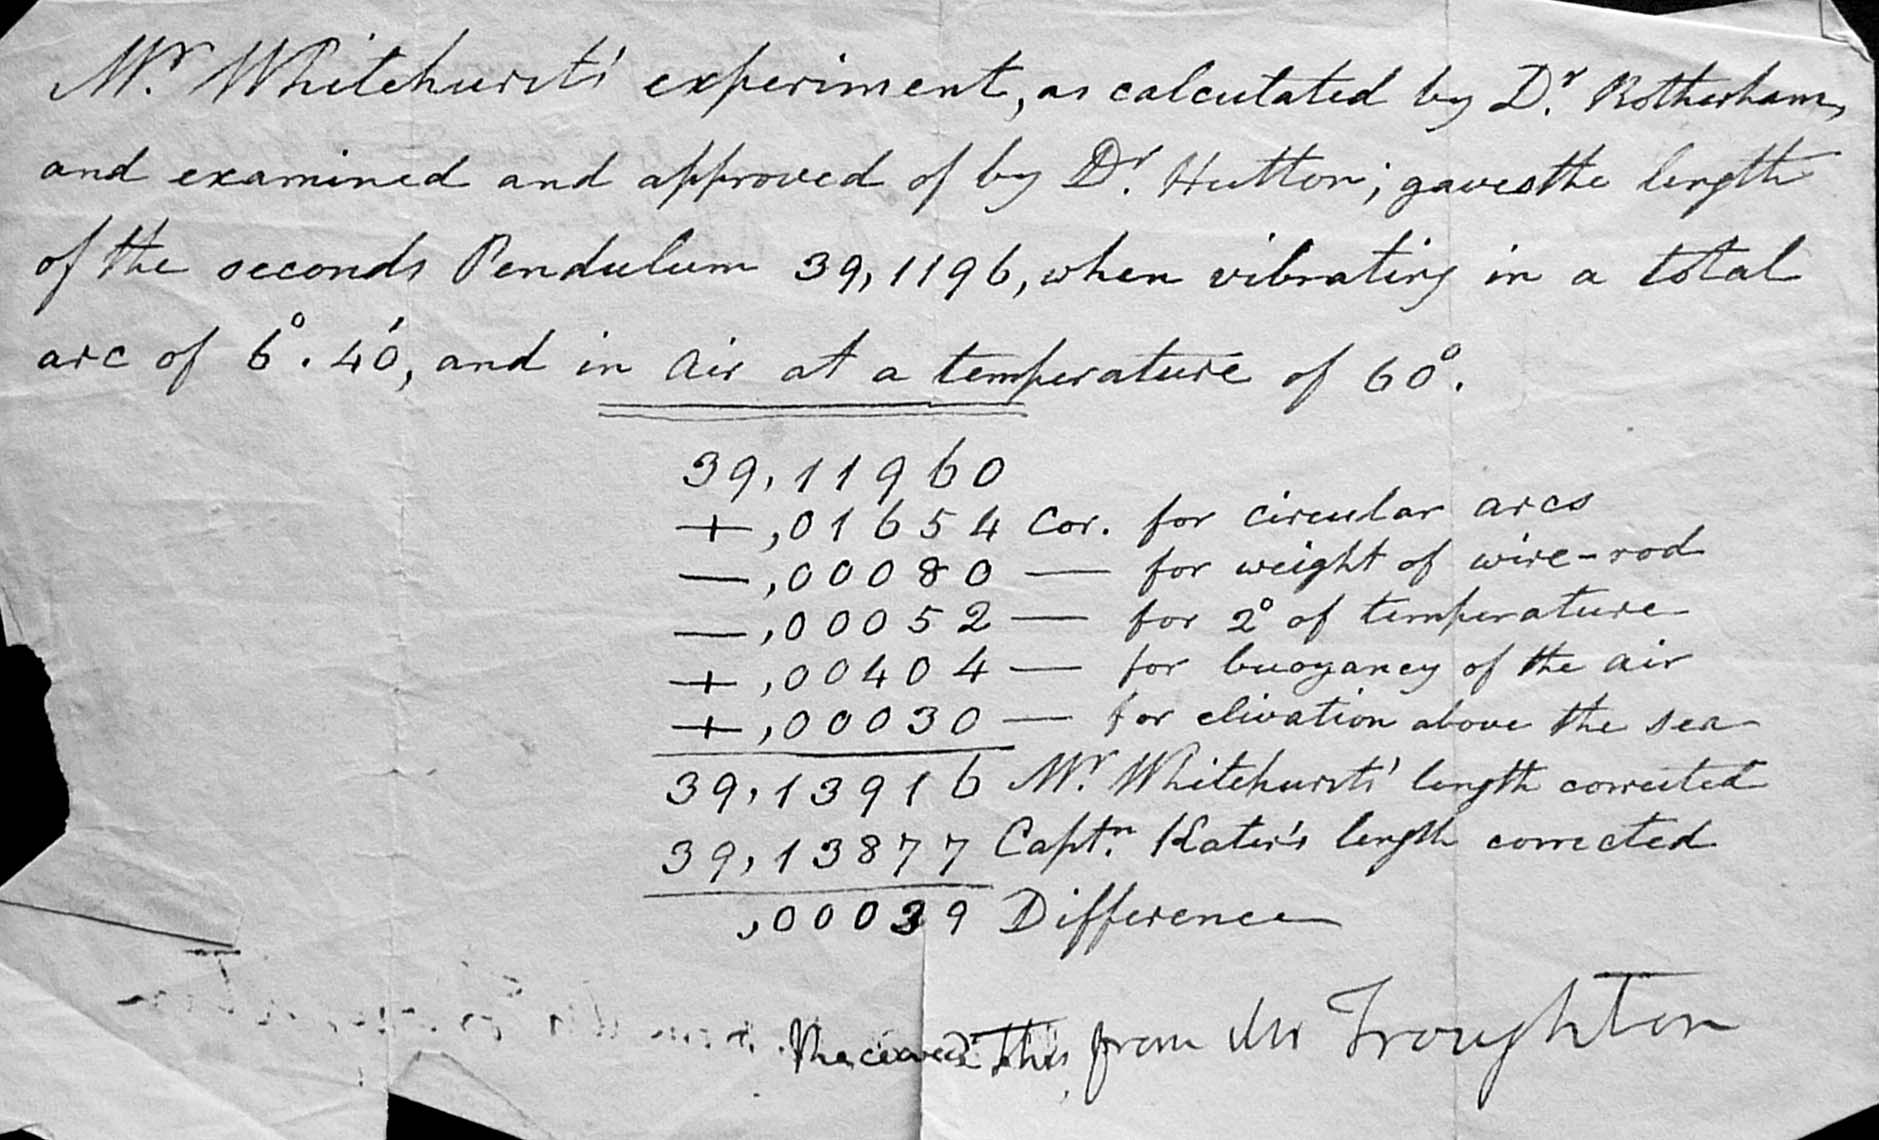 Mr. Whitehursts' experiment, as calculated by Dr. Rotherham,
and examined and approved of by Dr. Hutton; gave the length
of the seconds Pendulum 39,1196, when vibrating in a total
arc of 6°. 40', and in air at a temperature of 60°.
39,11960
+ ,01654 Cor. for circular arcs
— ,00080 — for weight of wire-rod
— ,00052 — for 2° of temperature
+ ,00404 — for buoyancy of the air
+ ,00030 — for elivation above the sea
39,13916 Mr. Whitehursts' length corrected
39,13877 Captn. Kater's length corrected
,00039 Difference
Received this from Mr Troughton